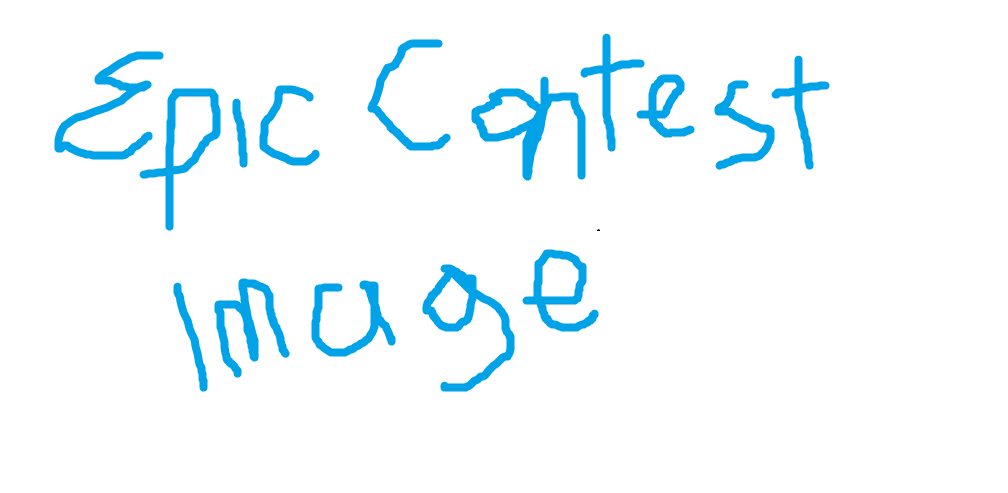 Epic Contest
Image